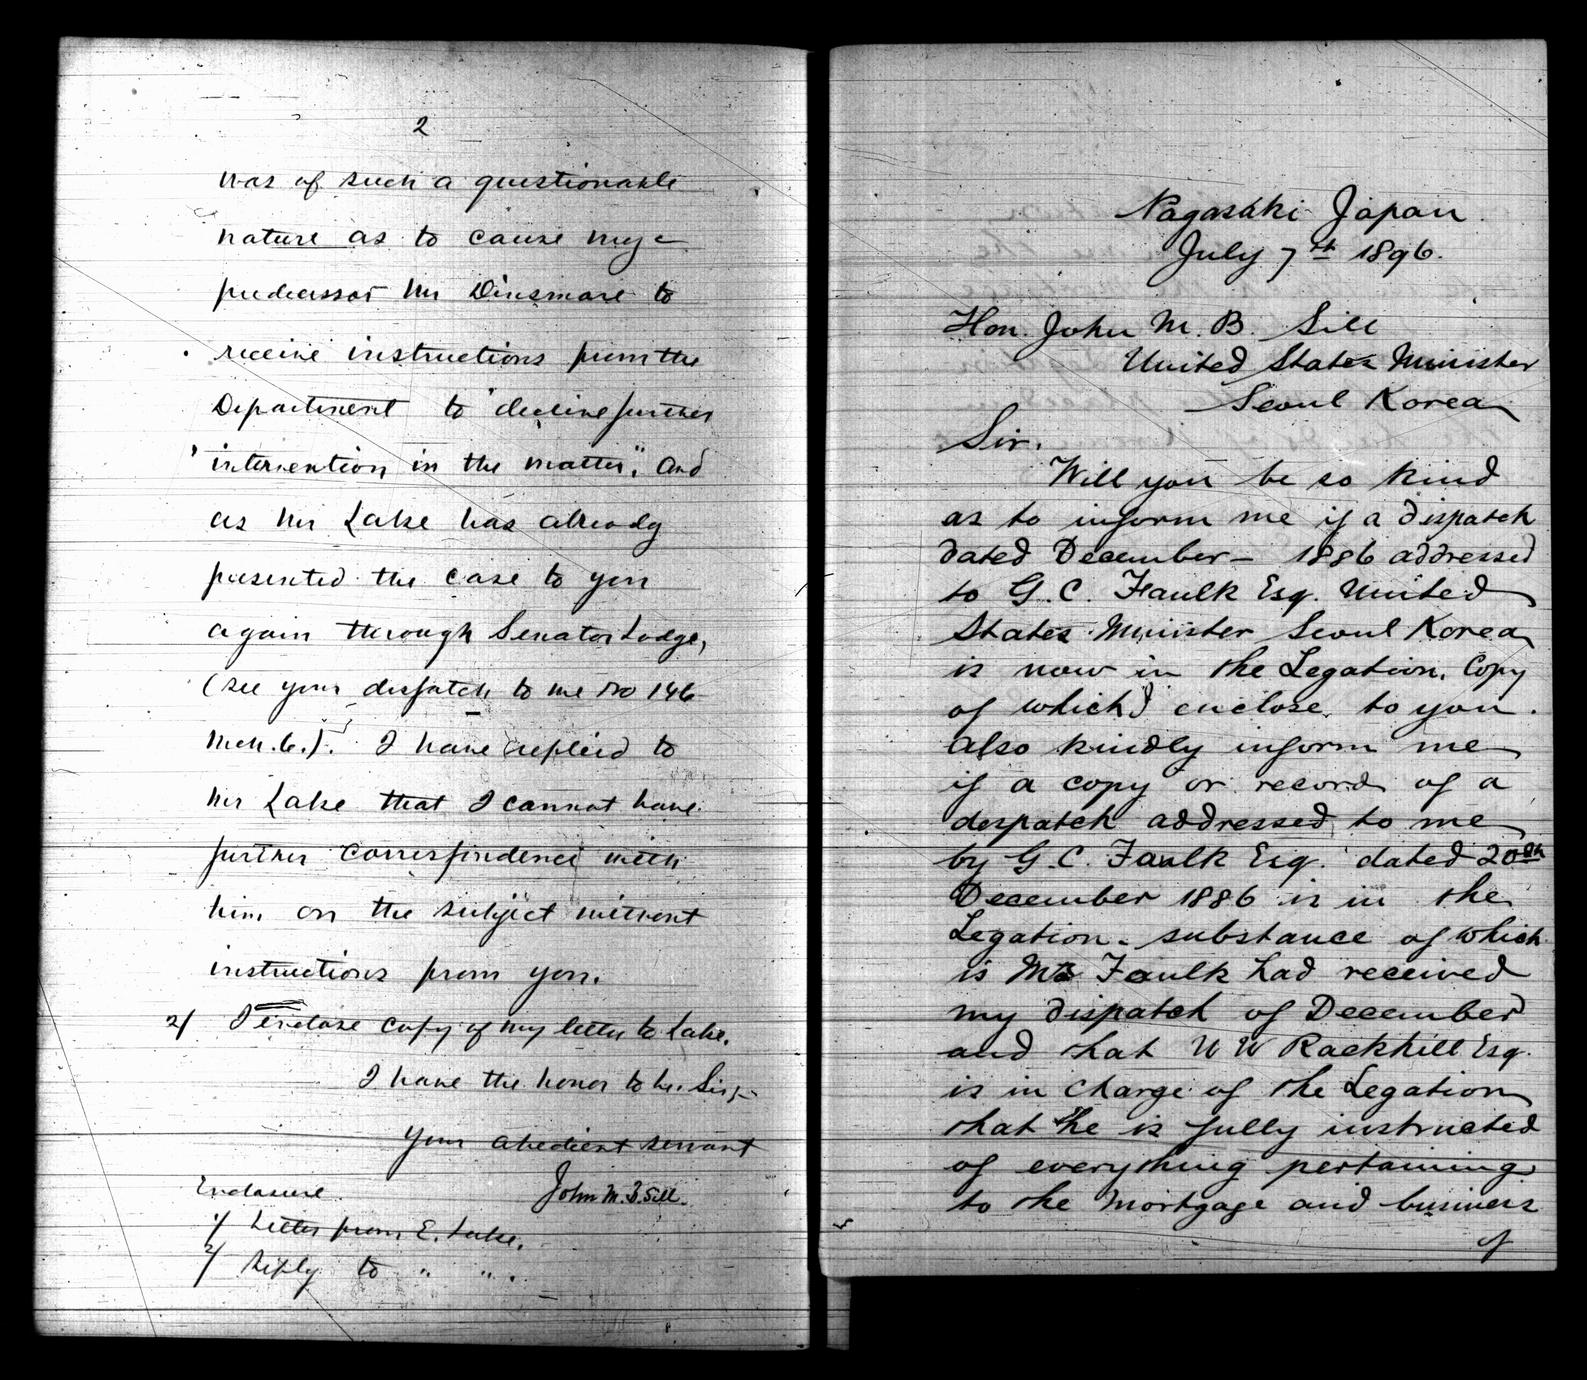 2
was of such a questionable
nature as to cause my
predecessor Mr Dinsmore to
receive instructions from the
Department to "decline further
intervention in the matter", and
as Mr Lake has already
presented the case to you
again through Senator Lodge,
(see your dispatch to me No 146
Mch. 6.). I have replied to
Mr Lake that I cannot have
further correspondence with
him on the subject without
instructions from you.
2/ I enclose copy of my letter to Lake.
I have the honor to be. Sir,
Your obedient servant
John M. B. Sill.
Enclosure
1/ Letter from E. Lake.
2/ Reply to " " .
Nagasaki Japan
July 7th 1896.
Hon. John M. B. Sill
United States Minister
Seoul Korea
Sir.
Will you be so kind
as to inform me if a dispatch
dated December – 1886 addressed
to G. C. Faulk Esq. United
States Minister Seoul Korea
is now in the Legation. Copy
of which I enclose to you.
Also kindly inform me
if a copy or record of a
despatch addressed to me
by G. C. Faulk Esq. dated 20th
December 1886 is in the
Legation. substance of which
is Mr Faulk had received
my dispatch of December
and that W W Rackhill Esq.
is in charge of the Legation
that he is fully instructed
of everything pertaining
to the Mortgage and business
of